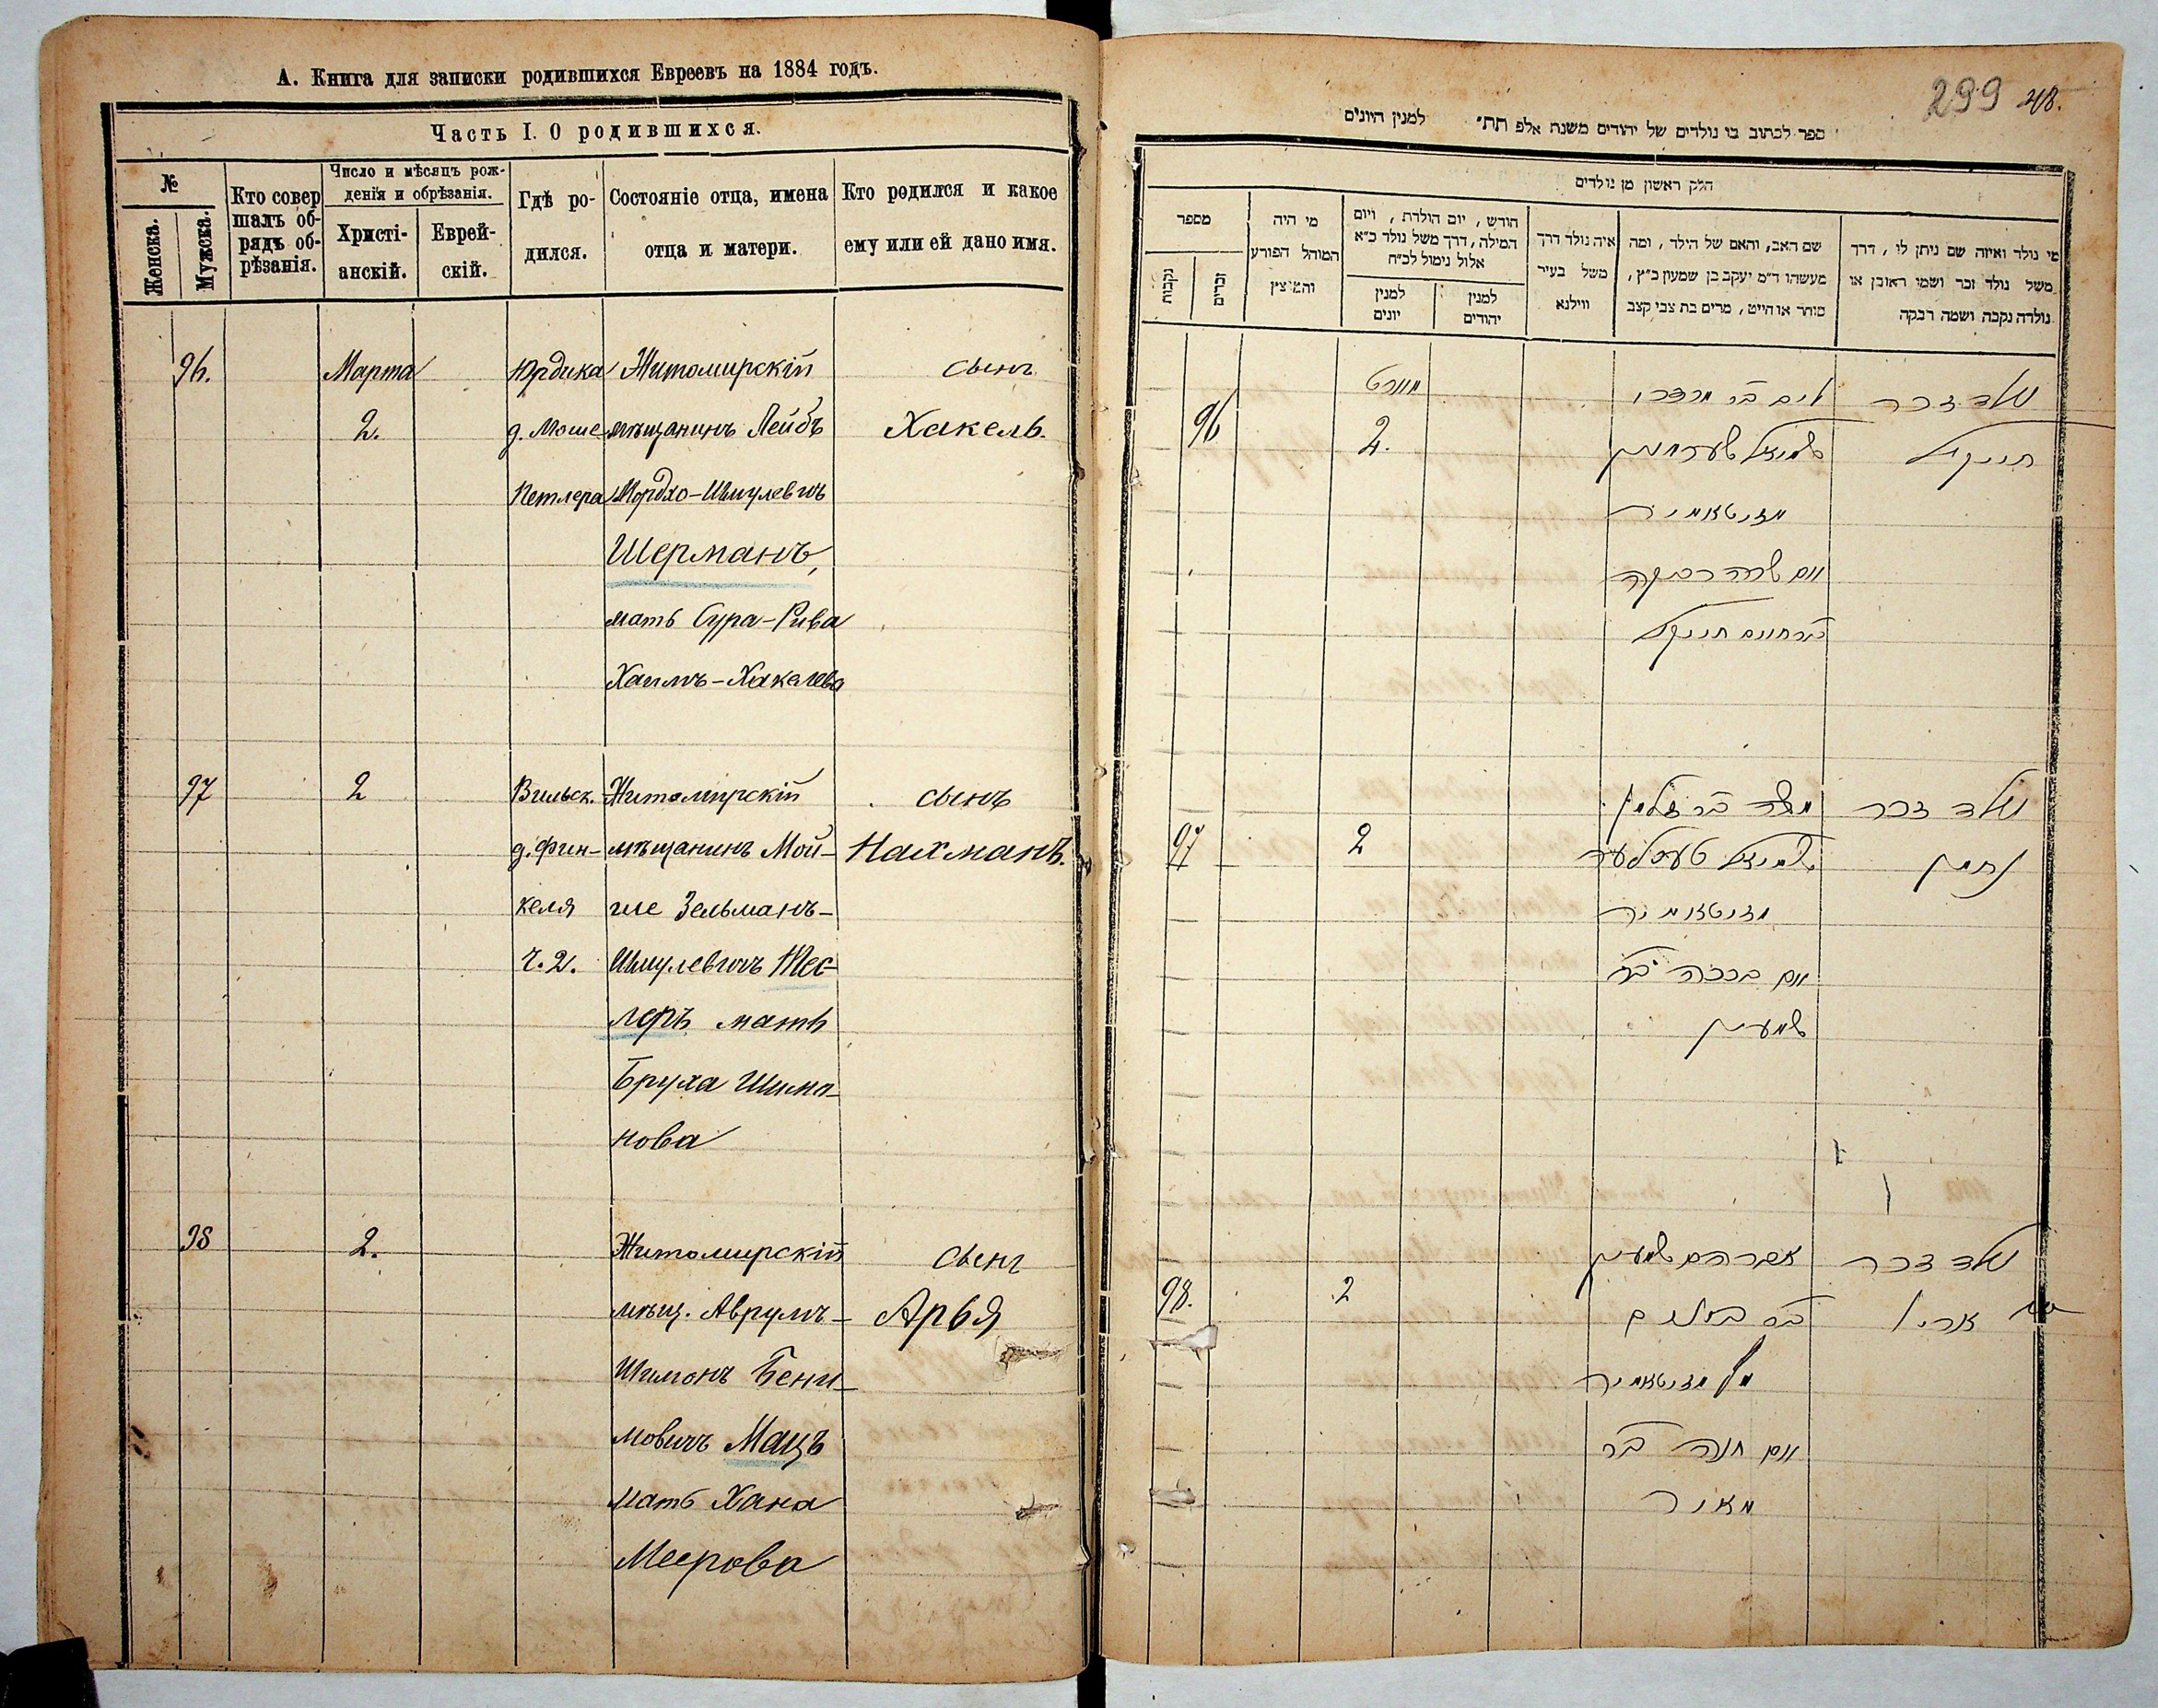 А. Книга для записки родившихся Евреевъ на 1884 годъ.
Часть I. О родившихся.
№
Женска.
Мужска.
Кто совер
шалъ об-
рядъ об-
рѣзанія.
Число и мѣсяцъ рож-
денія и обрѣзанія.
Христі-
анскій.
Еврей-
скій.
Гдѣ ро-
дился.
Состояніе отца, имена
отца и матери.
Кто родился и какое
ему или ей дано имя.
96.
Марта
2.
Юрдика
д. Моше
Петлера
Житомирскій
мѣщанинъ Лейбъ
Мордко-Шмулевичъ
Шерманъ,
мать Сура-Рива
Хаимъ-Хакелева
сынъ
Хакель.
97
2
Вильск.
д. Фин-
келя
ч. 2.
Житомирскій
мѣщанинъ Мой-
ше Зельманъ-
Шмулевичъ Тес-
леръ мать
Бруха Шимо-
нова
сынъ
Нахманъ.
98
2.
Житомирскій
мѣщ. Аврумъ-
Шимонъ Бени-
мовичъ Мацъ
мать Хана
Меерова
сынъ
Арья
299 48.
ספר לכתוב בו נולדים של יהודים משנת אלפ תת״ למנין היונים
חלק ראשון מן נולדים
מספר
נקבות
זכרים
מי היה
המוהל הפורע
והמוצץ
חודש, יום הולדת, ויום
המילה, דרך משל נולד כ״א
אלול נימול לכ״ח
למנין
יונים
למנין
יהודים
איה נולד דרך
משל בעיר
ווילנא
שם האב, והאם של הילד, ומה
מעשהו ד״מ יעקב בן שמעון כ״ץ,
סוחר או חייט, מרים בת צבי קצב
מי נולד ואיזה שם ניתן לו, דרך
משל נולד זכר ושמו ראובן או
נולדה נקבה ושמה רבקה
96
מארט
2.
ליב בר מרדכי
שמואל שערמאן
מזיטאמיר
אם שרה רבקה
בר חיים חייקל
נולד זכר
חייקל
97
2
משה בר זלמן
שמואל טעסלער
מזיטאמיר
אם ברכה
שמעון
נולד זכר
נחמן
98.
2
אברהם שמעון
בר
מץ מזיטאמיר
אם חנה בר
מאיר
נולד זכר